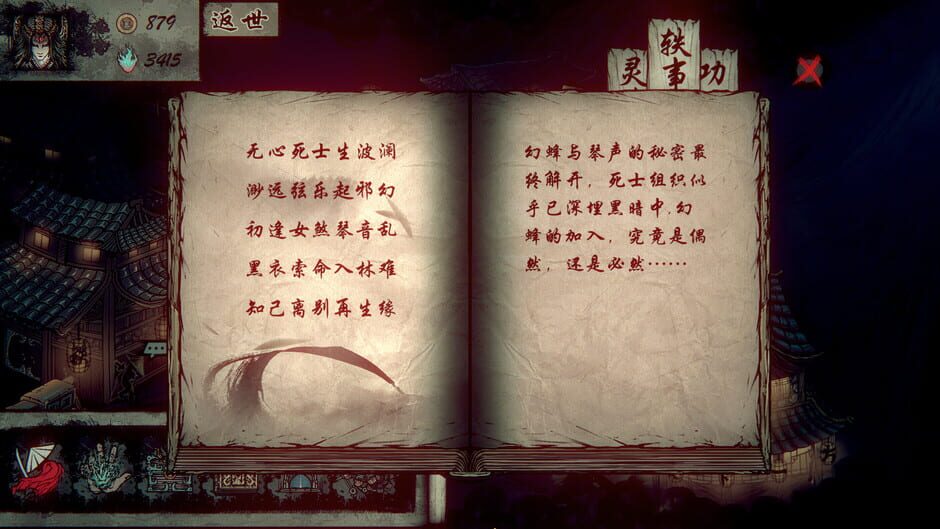 879
3415
返世
灵
轶事
功
无心死士生波澜
渺远弦乐起邪幻
初逢女煞琴音乱
黑衣索命入林难
知己离别再生缘
幻蜂与琴声的秘密最
终解开，死士组织似
乎已深埋黑暗中,幻
蜂的加入，究竟是偶
然，还是必然……